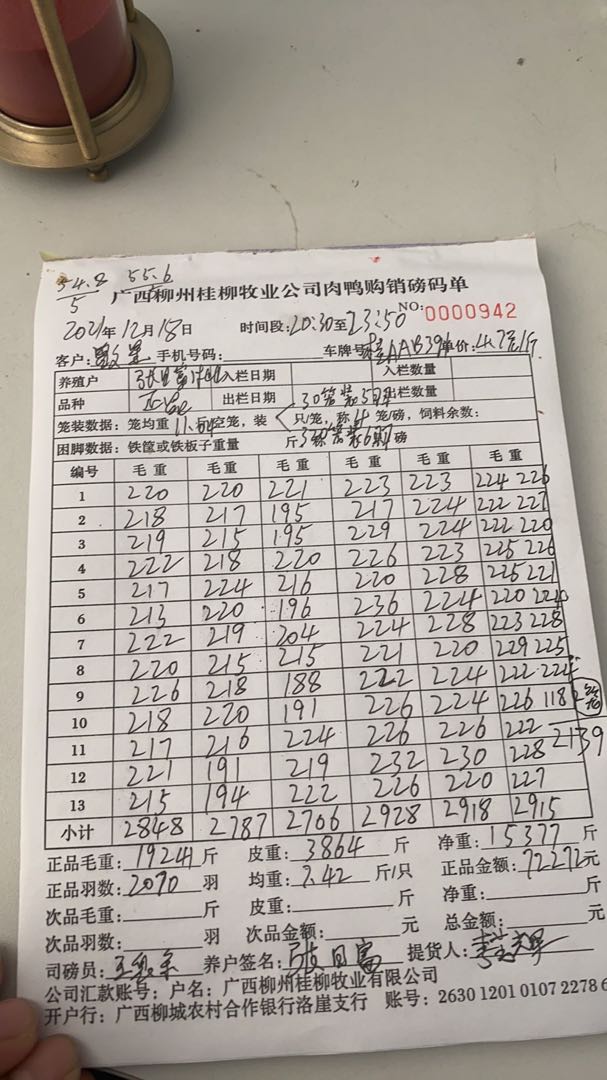 54.8 55.6
5
广西柳州桂柳牧业公司肉鸭购销磅码单
2021年12月18日 时间段:20:30至23:50 NO: 0000942
客户: 手机号码: 车牌号: AAB39 单价:4.7元/斤
养殖户 入栏日期 入栏数量
品种 正品 出栏日期 出栏数量
笼装数据:笼均重 斤/空笼,装 只/笼,称4笼/磅,饲料余数:
困脚数据:铁筐或铁板子重量 斤 磅
编号 毛重 毛重 毛重 毛重 毛重 毛重
1 220 220 221 223 223 224 226
2 218 217 195 217 224 222 227
3 219 215 195 229 224 222 220
4 222 218 220 226 223 225 226
5 217 224 216 220 228 225 221
6 213 220 196 236 224 220 224
7 222 219 204 224 228 223 228
8 220 215 215 221 220 229 225
9 226 218 188 222 224 222 224
10 218 220 191 226 224 226 118
11 217 216 224 226 226 222 2139
12 221 191 219 232 230 228
13 215 194 222 226 220 227
小计 2848 2787 2706 2928 2918 2915
正品毛重:19241斤 皮重:3864斤 净重:15377斤
正品羽数:2070羽 均重:7.42斤/只 正品金额:72272元
次品毛重: 斤 皮重: 斤 净重: 斤
次品羽数: 羽 次品金额: 元 总金额: 元
司磅员: 养户签名:张日富 提货人:
公司汇款账号:户名:广西柳州桂柳牧业有限公司
开户行:广西柳城农村合作银行洛崖支行 账号:2630 1201 0107 2278 6